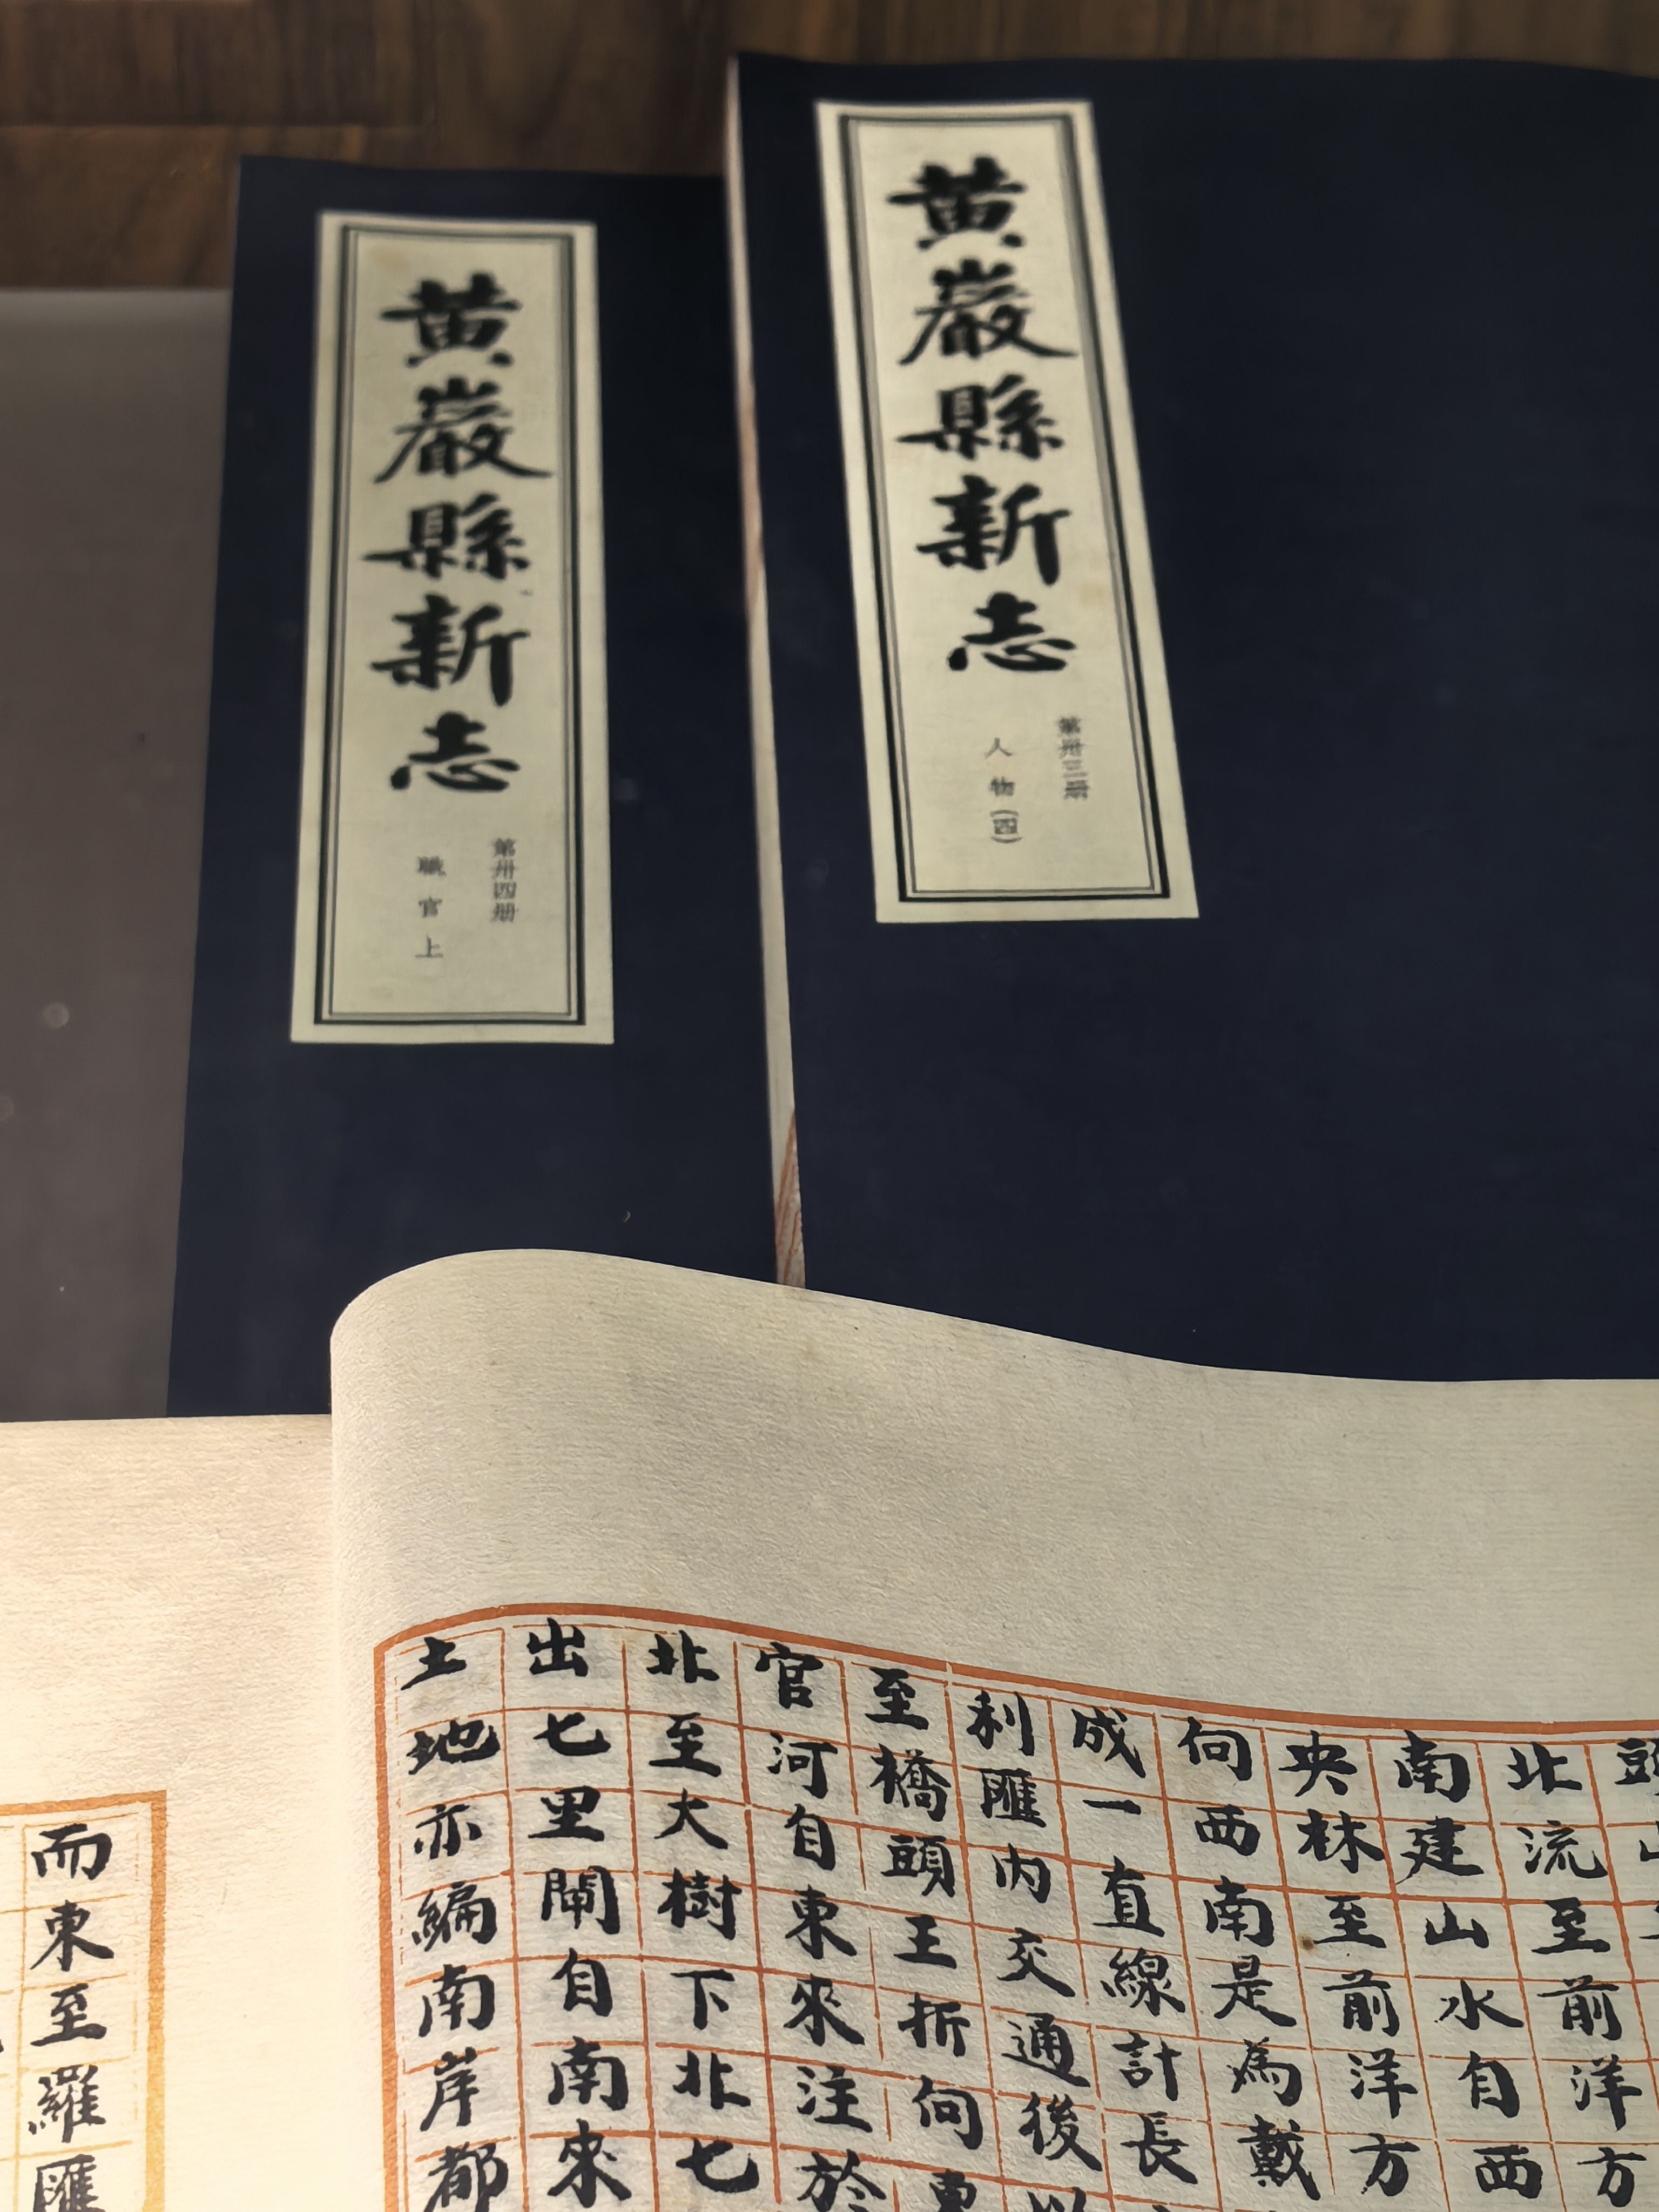 黃巖縣新志
第卅三册
人物(四)
黃巖縣新志
第卅四册
職官上
北流至前洋方
南建山水自西
央林至前洋方
向西南是爲戴
成一直線計長
利匯內交通後以
至橋頭王折向東
官河自東來注於
北至大樹下北七
出七里閘自南來
土地亦編南岸都
而東至羅匯